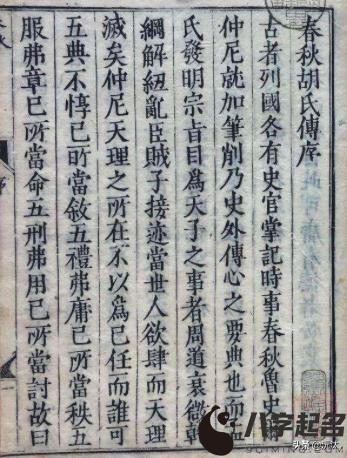 春秋胡氏傳序
古者列國各有史官掌記時事春秋魯史爾
仲尼就加筆削乃史外傳心之要典也而孟
氏發明宗旨目爲天子之事者周道衰微乾
綱解紐亂臣賊子接迹當世人欲肆而天理
滅矣仲尼天理之所在不以爲已任而誰可
五典不惇已所當敘五禮弗庸已所當秩五
服弗章已所當命五刑弗用已所當討故曰
八字起名